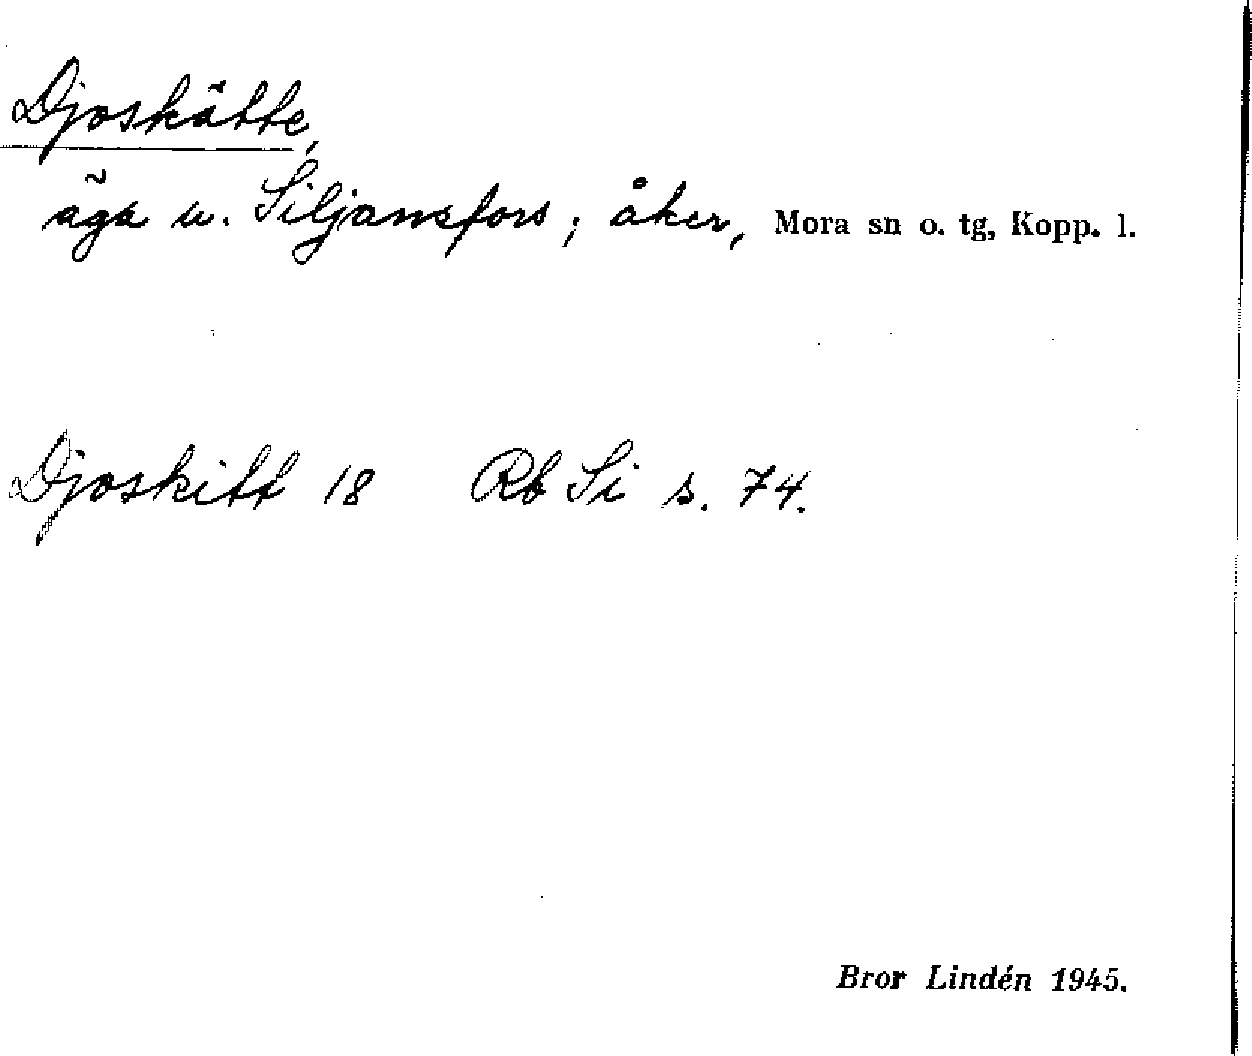 Djoskätte,
äga u. Siljansfors; åker, Mora sn o. tg, Kopp. l.
Djoskitt 18 Rb Si s. 74.
Bror Lindén 1945.